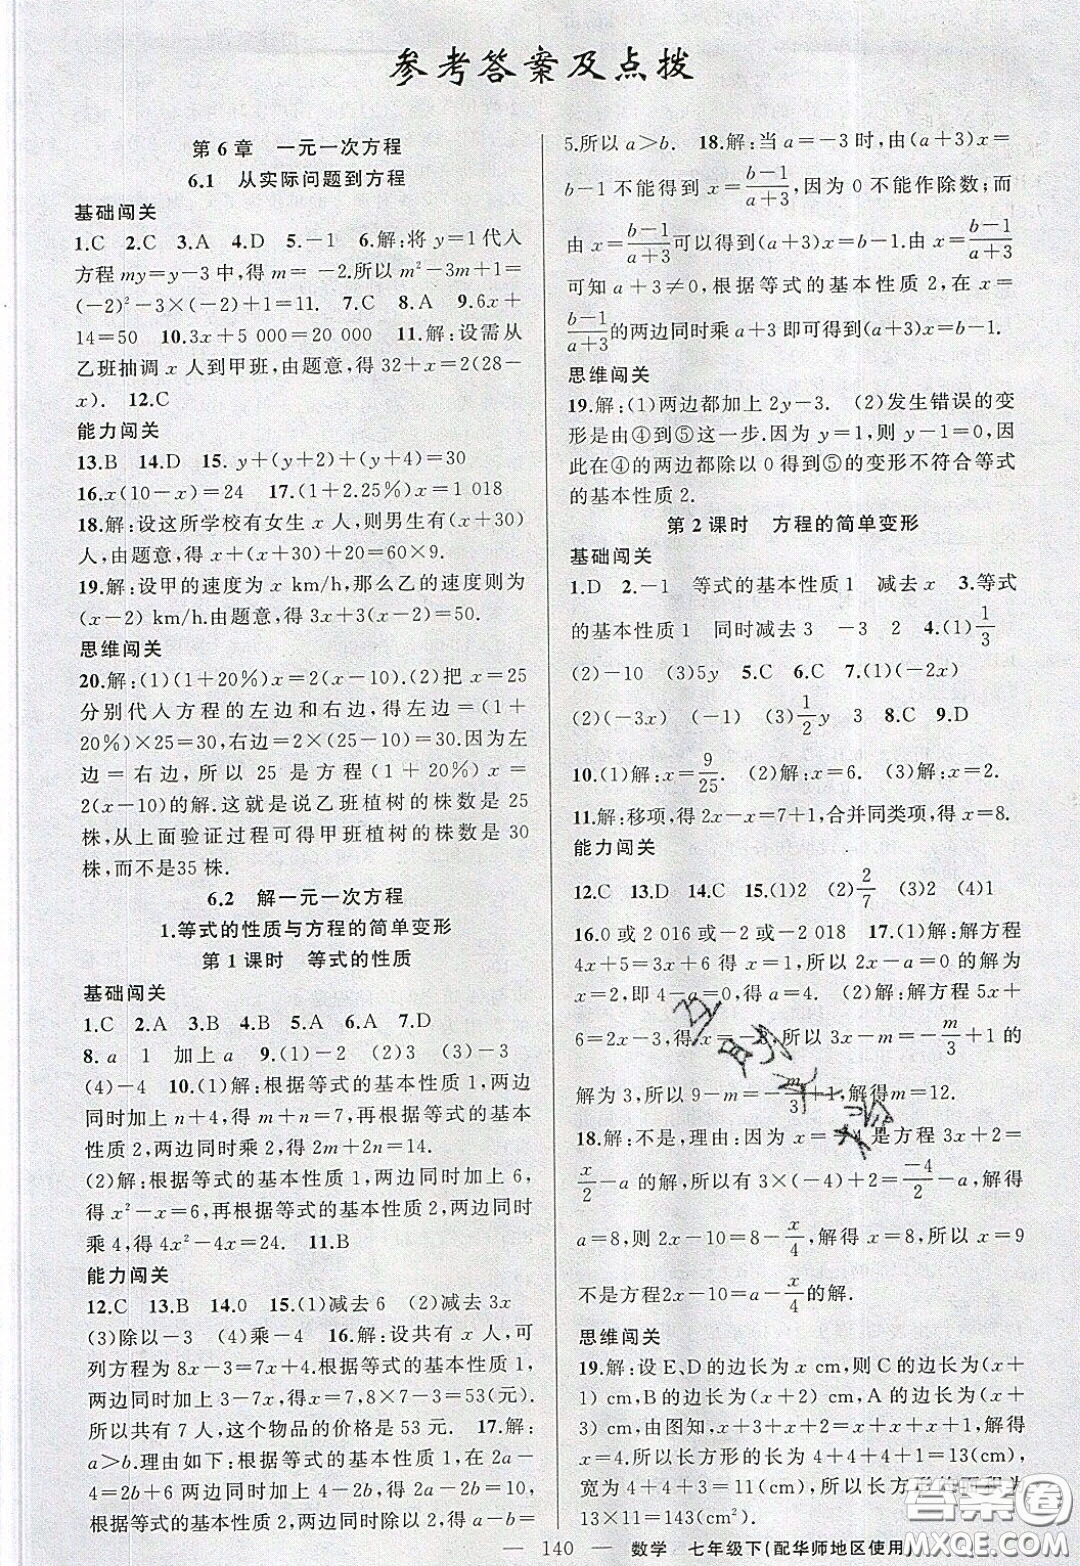 参考答案及点拨
第6章 一元一次方程
6.1 从实际问题到方程
基础闯关
1.C 2.C 3.A 4.D 5.-1 6.解:将 y=1代入
方程 my=y-3中,得 m= -2.所以 m²-3m+1=
(-2)²-3×(-2)+1=11. 7.C 8.A 9.6x+
14=50 10.3x+5 000=20 000 11.解:设需从
乙班抽调 x 人到甲班,由题意,得 32+x=2(28-
x). 12.C
能力闯关
13.B 14.D 15. y+(y+2)+(y+4)=30
16.x(10-x)=24 17.(1+2.25%)x=1 018
18.解:设这所学校有女生 x 人,则男生有(x+30)
人,由题意,得 x+(x+30)+20=60×9.
19.解:设甲的速度为 x km/h,那么乙的速度则为
(x-2) km/h.由题意,得 3x+3(x-2)=50.
思维闯关
20.解:(1)(1+20%)x=2(x-10).(2)把 x=25
分别代入方程的左边和右边,得左边=(1+
20%)×25=30,右边=2×(25-10)=30.因为左
边=右边,所以 25 是方程(1+20%)x=
2(x-10)的解.这就是说乙班植树的株数是 25
株,从上面验证过程可得甲班植树的株数是 30
株,而不是35 株.
6.2 解一元一次方程
1.等式的性质与方程的简单变形
第1课时 等式的性质
基础闯关
1.C 2.A 3.B 4.B 5.A 6.A 7.D
8.a 1 加上 a 9.(1)-2 (2)3 (3)-3
(4)-4 10.(1)解:根据等式的基本性质1,两边
同时加上 n+4,得 m+n=7,再根据等式的基本
性质 2,两边同时乘 2,得 2m+2n=14.
(2)解:根据等式的基本性质 1,两边同时加上 6,
得 x²-x=6,再根据等式的基本性质 2,两边同时
乘 4,得 4x²-4x=24. 11.B
能力闯关
12.C 13.B 14.0 15.(1)减去 6 (2)减去 3x
(3)除以-3 (4)乘-4 16.解:设共有 x 人,可
列方程为 8x-3=7x+4.根据等式的基本性质 1,
两边同时加上 3-7x,得 x=7,8×7-3=53(元).
所以共有 7 人,这个物品的价格是 53 元. 17.解:
a>b.理由如下:根据等式的基本性质 1,得 2a-
4=2b+6 两边同时加上 4-2b,得 2a-2b=10,
根据等式的基本性质 2,两边同时除以 2,得 a-b=
5.所以 a>b. 18.解:当 a=-3 时,由(a+3)x=
b-1 不能得到 x=(b-1)/(a+3),因为 0 不能作除数;而
由 x=(b-1)/(a+3)可以得到(a+3)x=b-1.由 x=(b-1)/(a+3)
可知 a+3≠0,根据等式的基本性质 2,在 x=
(b-1)/(a+3)的两边同时乘 a+3 即可得到(a+3)x=b-1.
思维闯关
19.解:(1)两边都加上 2y-3. (2)发生错误的变
形是由④到⑤这一步.因为 y=1,则 y-1=0,因
此在④的两边都除以 0 得到⑤的变形不符合等式
的基本性质 2.
第2课时 方程的简单变形
基础闯关
1.D 2.-1 等式的基本性质1 减去 x 3.等式
的基本性质1 同时减去 3 -3 2 4.(1)1/3
(2)-10 (3)5y 5.C 6.C 7.(1)(-2x)
(2)(-3x) (-1) (3)1/2y 3 8.C 9.D
10.(1)解:x=9/25. (2)解:x=6. (3)解:x=2.
11.解:移项,得 2x-x=7+1,合并同类项,得 x=8.
能力闯关
12.C 13.D 14.C 15.(1)2 (2)2/7 (3)2 (4)1
16.0 或 2 016 或-2 或-2 018 17.(1)解:解方程
4x+5=3x+6 得 x=1,所以 2x-a=0 的解为
x=2,即 4-a=0,得 a=4. (2)解:解方程 5x+
6=2x-3,得 x=-3,所以 3x-m=-m/3+1 的
解为 3,所以 9-m=-m/3+1,解得m=12.
18.解:不是,理由:因为 x=-4 是方程 3x+2=
x/2-a 的解,所以有 3×(-4)+2=-4/2-a,解得
a=8,则 2x-10=8-x/4,解得 x=8,所以 x=9
不是方程2x-10=a-x/4的解.
思维闯关
19.解:设 E、D 的边长为 x cm,则 C 的边长为(x+
1) cm,B的边长为(x+2)cm,A的边长为(x+
3) cm,由图知,x+3+x+2=x+x+x+1,解得
x=4.所以长方形的长为 4+4+4+1=13(cm),
宽为 4+4+3=11(cm).所以长方形的面积为
13×11=143(cm²).
— 140 — 数学 七年级下(配华师地区使用)
答案圈
MXQE.COM